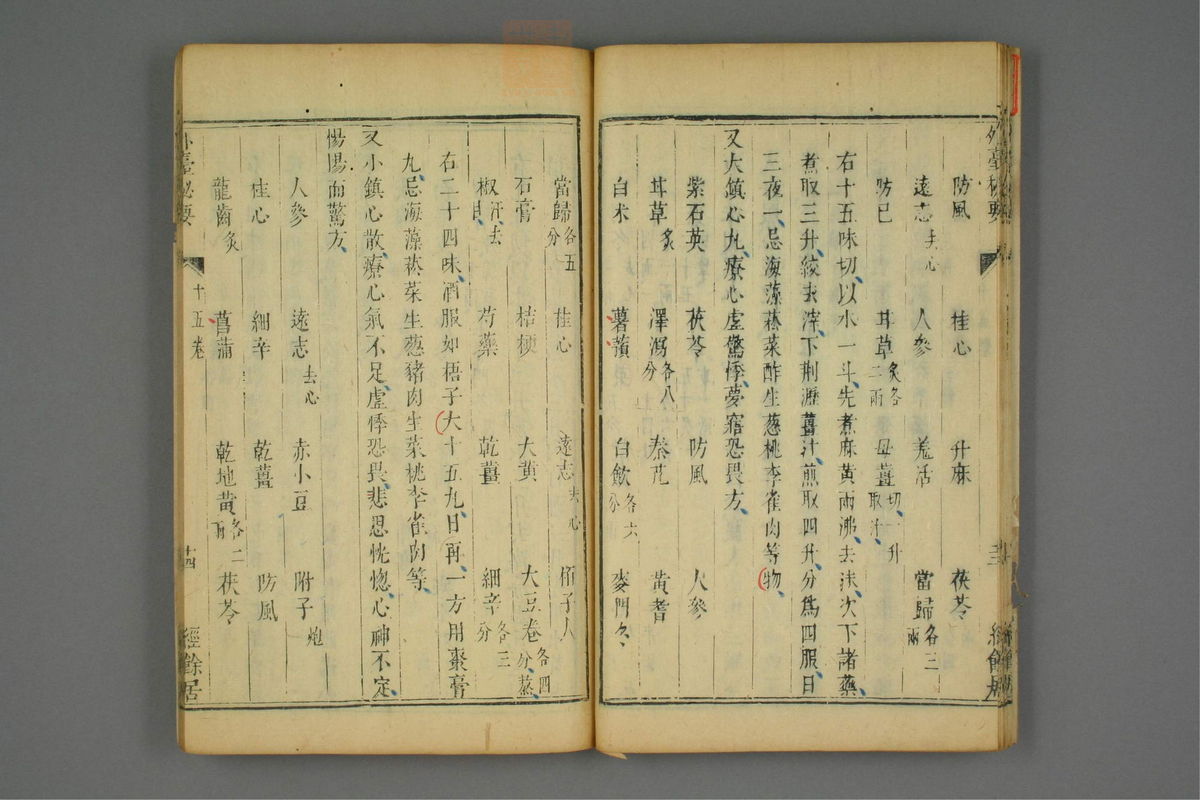 防風 桂心 升麻 茯苓
遠志去心 人參 羗活 當歸各三兩
防已 甘草炙各二兩 母薑切一升取汁
右十五味切以水一斗先煮麻黃兩沸去沫次下諸藥
煮取三升絞去滓下荆瀝薑汁煎取四升分爲四服日
三夜一忌海藻菘菜酢生葱桃李雀肉等物
又大鎮心丸療心虛驚悸夢寤恐畏方
紫石英 茯苓 防風 人參
甘草炙 澤瀉各八分 秦艽 黃耆
白术 薯蕷 白歛各六分 麥門冬
當歸各五分 桂心 遠志去心 栢子人
石膏 桔梗 大黃 大豆卷各四分蒸
椒汗去目 芍藥 乾薑 細辛各三分
右二十四味酒服如梧子大十五丸日再一方用棗膏
丸忌海藻菘菜生葱豬肉生菜桃李雀肉等
又小鎮心散療心氣不足虛悸恐畏悲思恍惚心神不定
惕惕而驚方
人參 遠志去心 赤小豆 附子炮
桂心 細辛 乾薑 防風
龍齒炙 菖蒲 乾地黃各二兩 茯苓
外臺祕要 十五卷 十四 經餘居